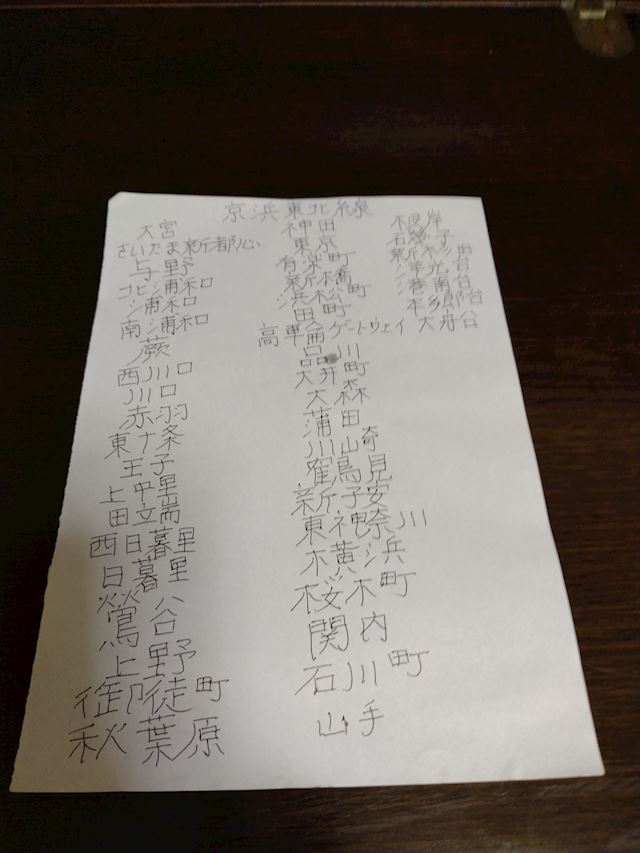 京浜東北線
大宮
さいたま新都心
与野
北浦和
浦和
南浦和
蕨
西川口
川口
赤羽
東十条
王子
上中里
田端
西日暮里
日暮里
鶯谷
上野
御徒町
秋葉原
神田
東京
有楽町
新橋
浜松町
田町
高輪ゲートウェイ
品川
大井町
大森
蒲田
川崎
鶴見
新子安
東神奈川
横浜
桜木町
関内
石川町
山手
根岸
磯子
新杉田
洋光台
港南台
本郷台
大船